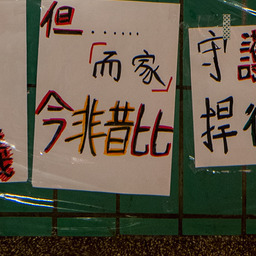 但......
「而家」
今非昔比
守護
捍